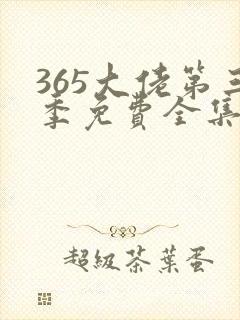 365大佬第三
季免費全集
超級茶葉蛋